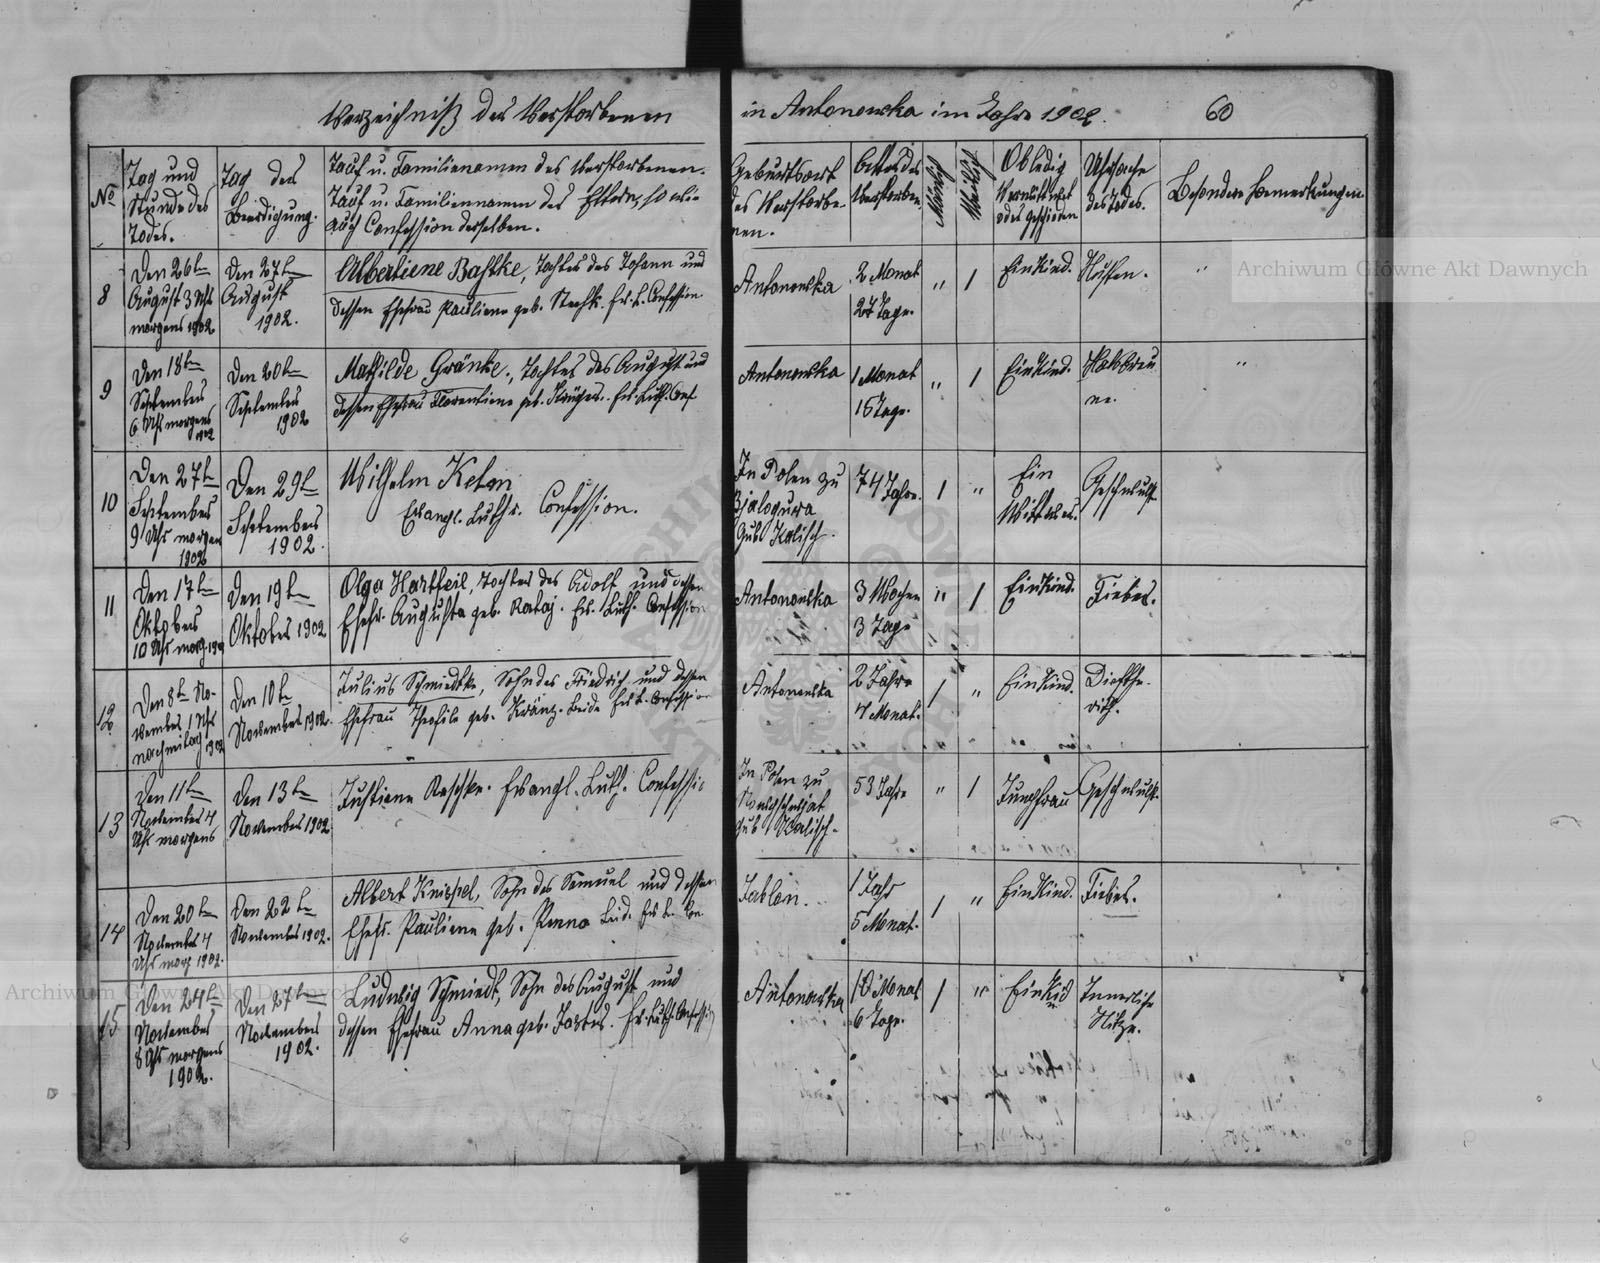 Verzeichniß der Verstorbenen in Antonowka im Jahre 1902. 60
No
Tag und
Stunde des
Todes.
Tag der
Beerdigung.
Tauf u. Familienamen des Verstorbenen.
Tauf u. Familiennamen der Eltern, so wie
auch Confession derselben.
Geburtsort
des Verstorbe-
nen.
Alter des
Verstorben.
Männlich
Weiblich
Ob ledig
Verwittwet
oder geschieden
Ursache
des Todes.
Besondere Bemerkungen
8
Den 26ten
August 3 Uhr
morgens 1902
Den 27ten
August
1902.
Albertiene Bastke, Tochter des Johann und
dessen Ehefrau Pauliene geb. Ev. L. Confession
Antonowka
2 Monat
27 Tage.
" 1
Ein Kind.
Husten.
"
9
Den 18ten
September
6 Uhr morgens
1902
Den 20ten
September
1902
Mathilde Gränke., Tochter des August und
dessen Ehefrau Florentiene geb. Krüger. Ev. Luth. Conf
Antonowka
1 Monat
15 Tage.
" 1
Ein Kind.
"
10
Den 27ten
September
9 Uhr morgen
1902
Den 29ten
September
1902.
Wilhelm Kelm
Evangl. Luthr. Confession.
In Polen zu
Gub Kalisch.
74 Jahr.
1 "
Ein
Wittwer.
Geschwulst.
11
Den 17ten
Oktober
10 Uhr morg. 1902
Den 19ten
Oktober 1902
Olga Hartteil, Tochter des Adolf und dessen
Ehefr. Augusta geb. Rataj. Ev. Luth. Confession
Antonowka
3 Wochen
3 Tage
" 1
Ein Kind.
Fieber.
12
Den 8ten No-
vember 1 Uhr
nachmitag 1902
Den 10ten
November 1902.
Julius Schmiedtke, Sohn des Friedrich und dessen
Ehefrau Theofile geb. Kränz. Beide Ev. L. Confession
Antonowka
2 Jahre
4 Monat.
1 "
Ein Kind.
Diefthe-
rith.
13
Den 11ten
November 4
Uhr morgens
Den 13ten
November 1902
Justiene Raschke. Evangl. Luth. Confessio
In Polen zu
Gub Kalisch.
53 Jahre
" 1
Jungfrau
Geschwulst.
14
Den 20ten
November 4
Uhr morg 1902.
Den 22ten
November 1902.
Albert Knispel, Sohn des Samuel und dessen
Ehefr. Pauliene geb. Penno Beid. Ev. L. Con.
Jablon.
1 Jahr
5 Monat.
1 "
Ein Kind.
Fieber.
15
Den 24ten
November
8 Uhr morgens
1902.
Den 27ten
November
1902.
Ludwig Schmiedt, Sohn des August und
dessen Ehefrau Anna geb. Ev. Luth. Confession
Antonowka
10 Monat
6 Tage.
1 "
Ein Kind
Innerliche
Hitze.
Archiwum Główne Akt Dawnych
Archiwum Główne Akt Dawnych